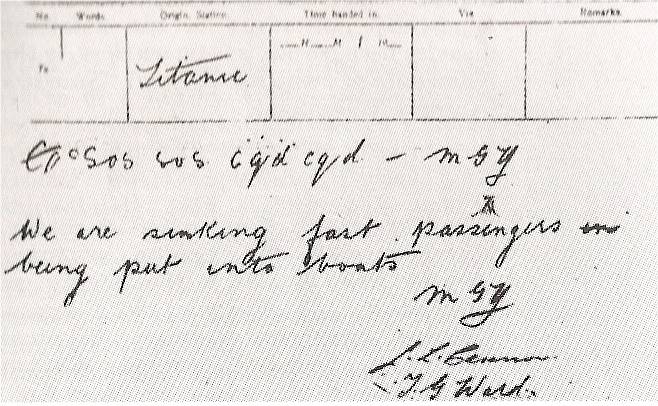 No. Words. Origin. Station. Time handed in. Via Remarks.
To Titanic — H — M / m —
SOS SOS cqd cqd — MGY
We are sinking fast passengers
being put into boats
MGY
T G Ward.